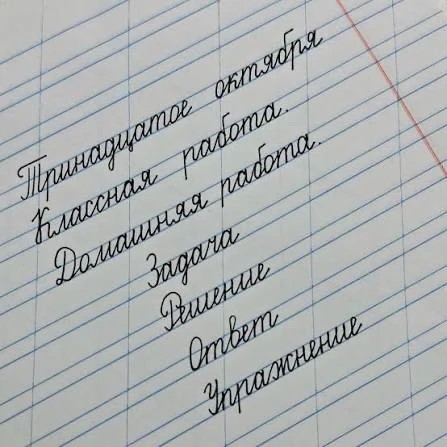 Тринадцатое октября
Классная работа.
Домашняя работа.
Задача
Решение
Ответ
Упражнение